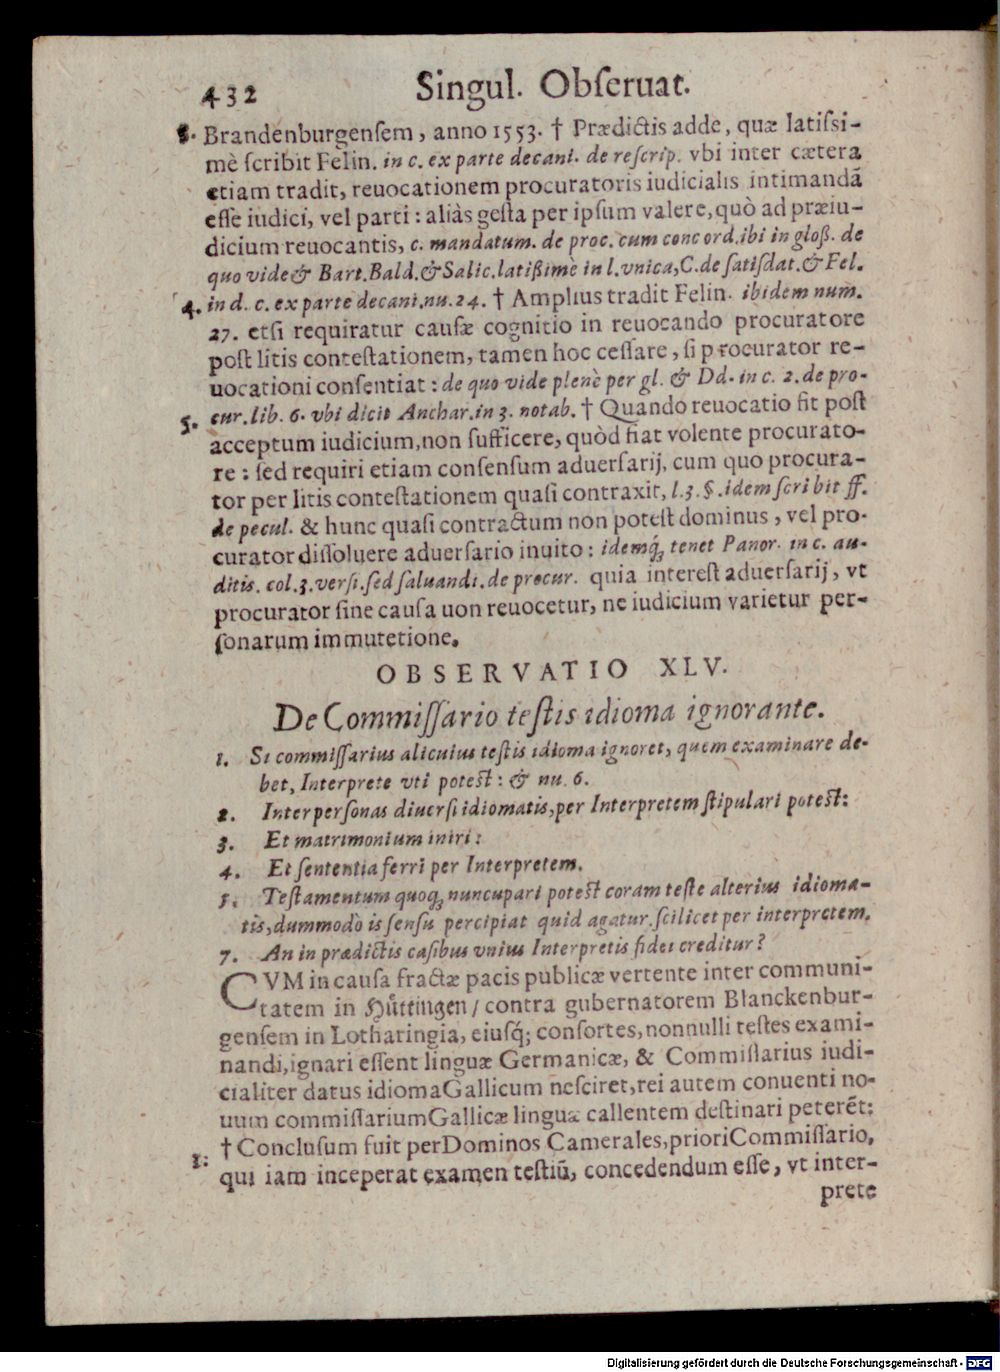 432 Singul. Obſeruat.
3. Brandenburgenſem, anno 1553. † Prædictis adde, quæ latiſsi-
mè ſcribit Felin. in c. ex parte decani. de reſcrip. vbi inter cætera
etiam tradit, reuocationem procuratoris iudicialis intimandā
eſſe iudici, vel parti: aliàs geſta per ipſum valere, quò ad præiu-
dicium reuocantis, c. mandatum. de proc. cum concord. ibi in gloß. de
quo vide & Bart. Bald. & Salic. latißimè in l. vnica, C. de ſatiſdat. & Fel.
4. in d. c. ex parte decani. nu. 24. † Amplius tradit Felin. ibidem num.
27. etſi requiratur cauſæ cognitio in reuocando procuratore
poſt litis conteſtationem, tamen hoc ceſſare, ſi procurator re-
uocationi conſentiat: de quo vide plenè per gl. & Dd. in c. 2. de pro-
5. cur. lib. 6. vbi dicit Anchar. in 3. notab. † Quando reuocatio fit poſt
acceptum iudicium, non ſufficere, quòd fiat volente procurato-
re: ſed requiri etiam conſenſum aduerſarij, cum quo procura-
tor per litis conteſtationem quaſi contraxit, l. 3. §. idem ſcribit ff.
de pecul. & hunc quaſi contractum non poteſt dominus, vel pro-
curator diſſoluere aduerſario inuito: idemq́; tenet Panor. in c. au-
ditis. col. 3. verſi. ſed ſaluandi. de procur. quia intereſt aduerſarij, vt
procurator ſine cauſa uon reuocetur, ne iudicium varietur per-
ſonarum immutetione.
OBSERVATIO XLV.
De Commiſſario teſtis idioma ignorante.
1. Si commiſſarius alicuius teſtis idioma ignoret, quem examinare de-
bet, Interprete vti poteſt: & nu. 6.
2. Inter perſonas diuerſi idiomatis, per Interpretem ſtipulari poteſt:
3. Et matrimonium iniri:
4. Et ſententia ferri per Interpretem.
5. Teſtamentum quoq; nuncupari poteſt coram teſte alterius idioma-
tis, dummodò is ſenſu percipiat quid agatur. ſcilicet per interpretem.
7. An in prædictis caſibus vnius Interpretis fidei creditur?
CVM in cauſa fractæ pacis publicæ vertente inter communi-
tatem in Hüttingen / contra gubernatorem Blanckenbur-
genſem in Lotharingia, eiuſq́; conſortes, nonnulli teſtes exami-
nandi, ignari eſſent linguæ Germanicæ, & Commiſſarius iudi-
cialiter datus idioma Gallicum neſciret, rei autem conuenti no-
uum commiſſarium Gallicæ linguæ callentem deſtinari peterēt:
1: † Concluſum fuit per Dominos Camerales, priori Commiſſario,
qui iam inceperat examen teſtiū, concedendum eſſe, vt inter-
prete
Digitalisierung gefördert durch die Deutsche Forschungsgemeinschaft - DFG